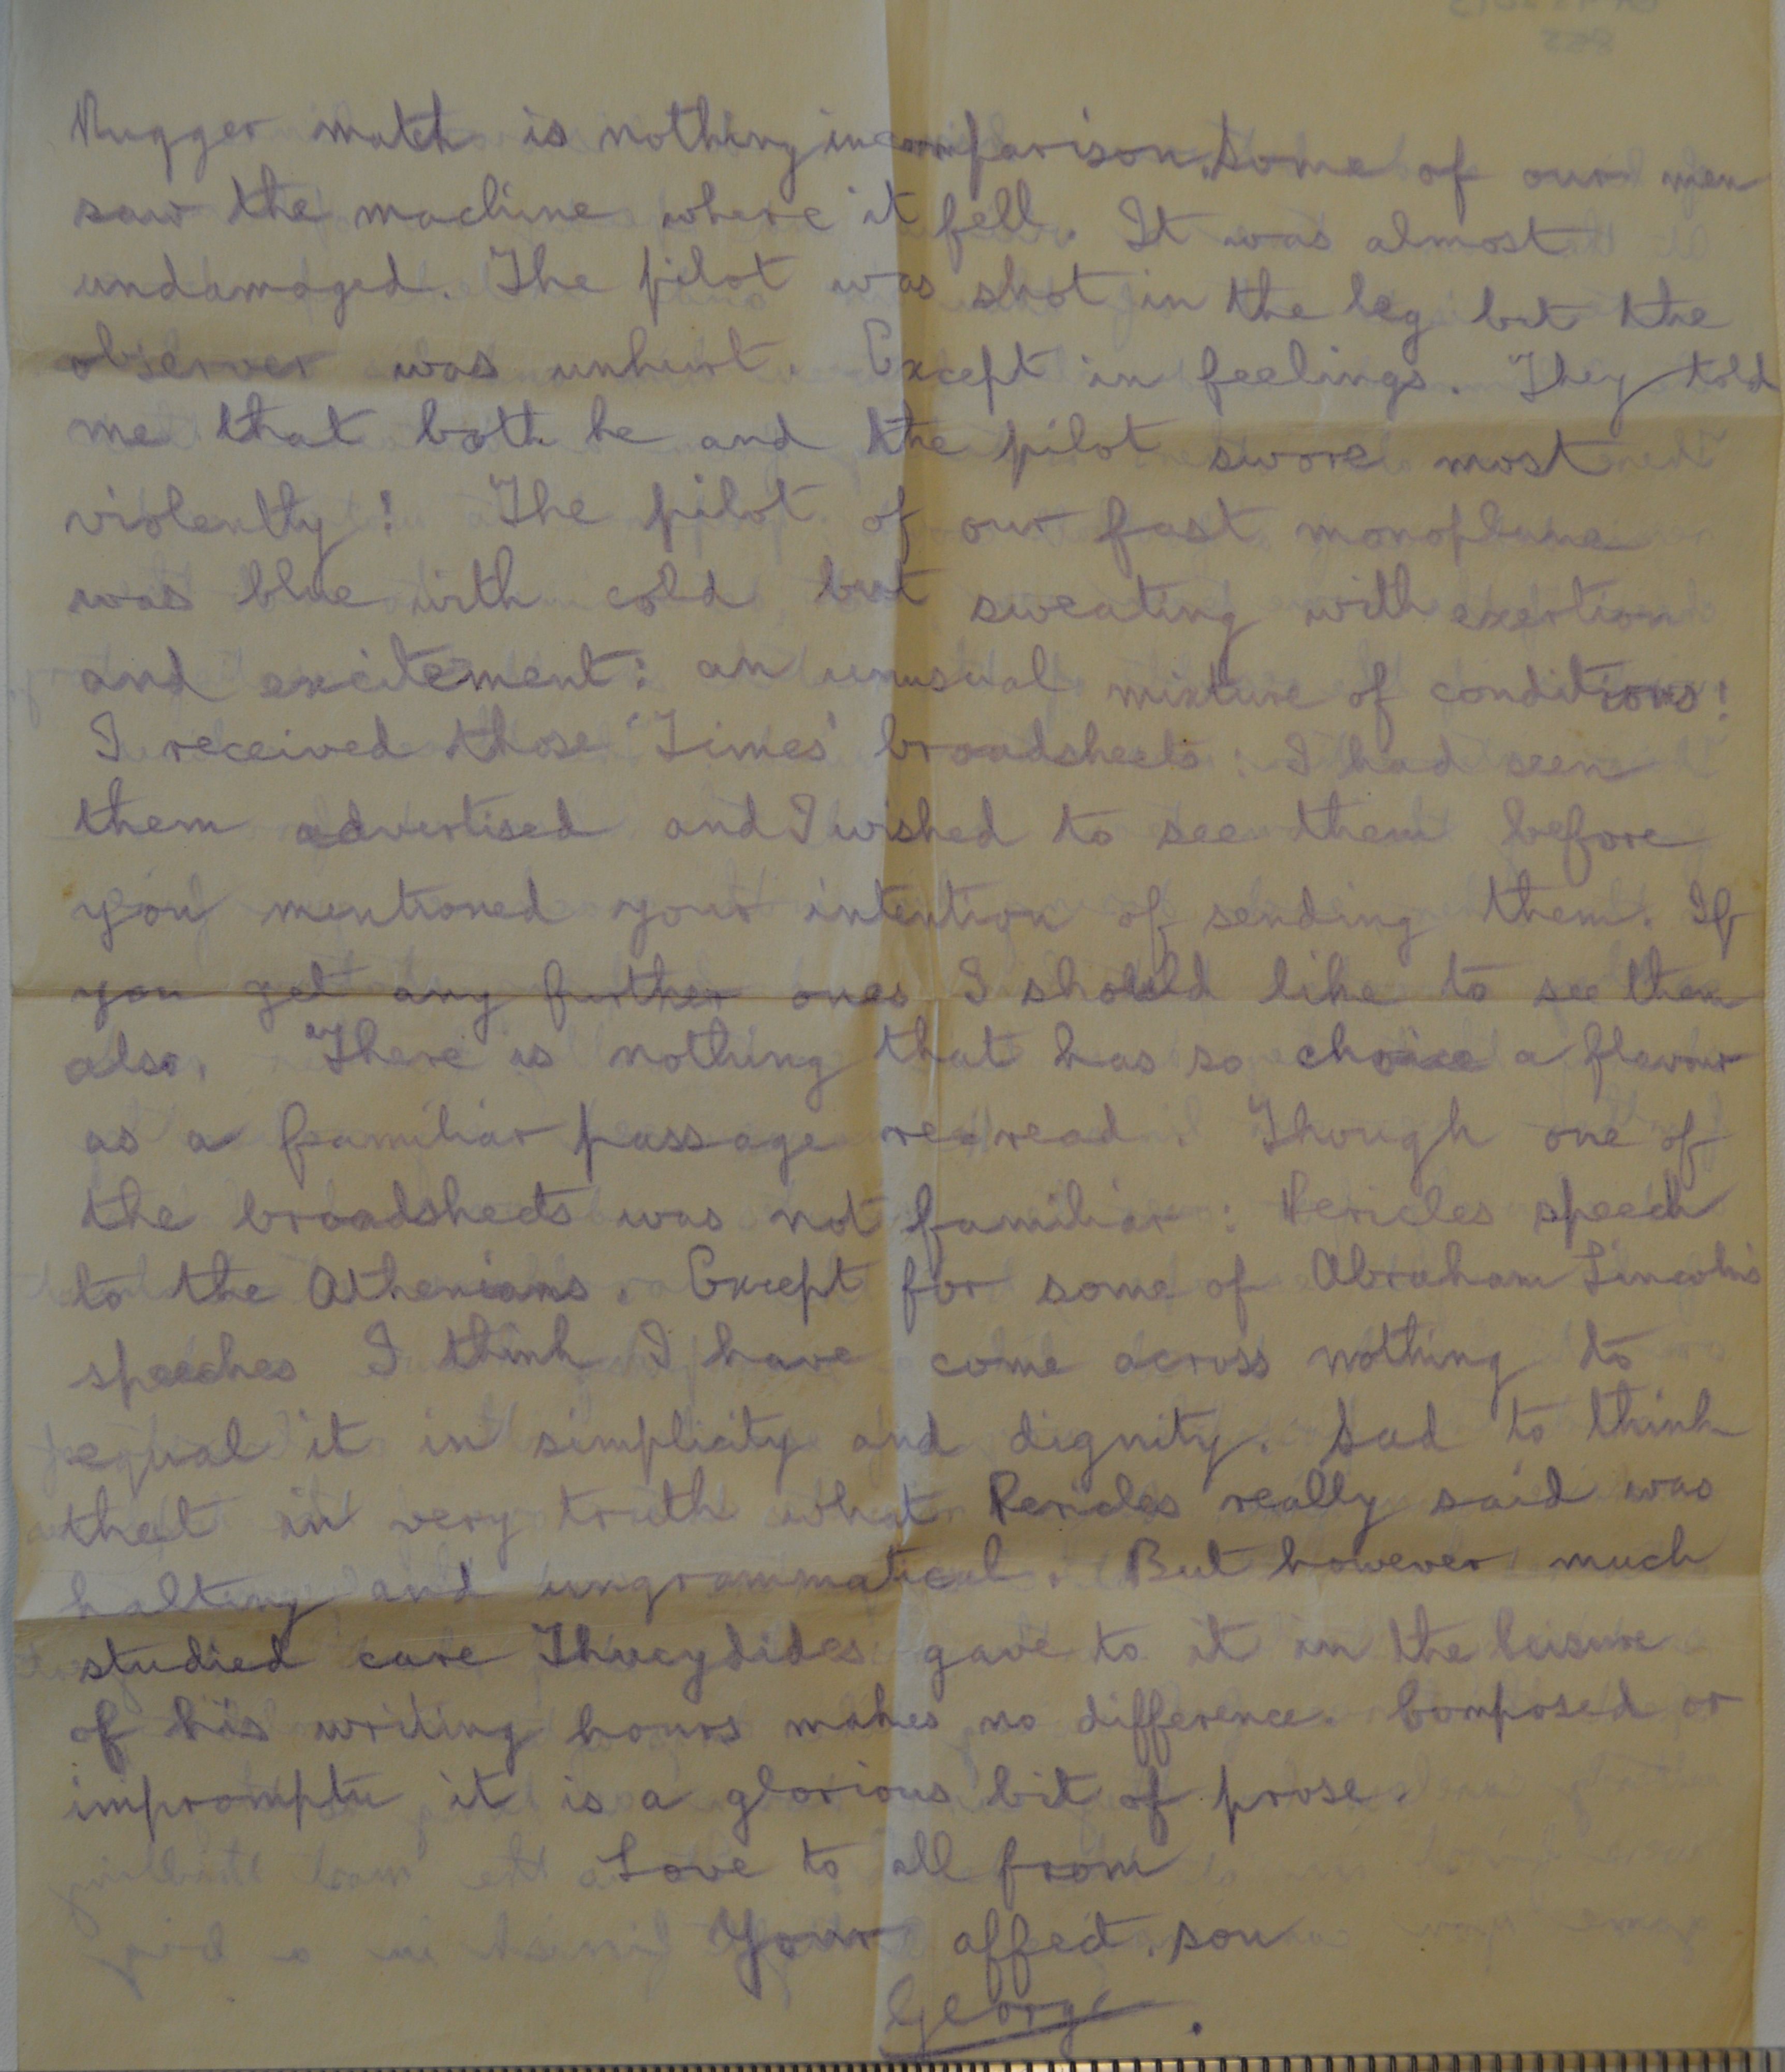 Rugger match is nothing in comparison. Some of our men
saw the machine where it fell. It was almost
undamaged. The pilot was shot in the leg but the
observer was unhurt. Except in feelings. They told
me that both he and the pilot swore most
violently! The pilot of our fast monoplane
was blue with cold but sweating with exertion
and excitement: an unusual mixture of conditions!
I received those 'Times' broadsheets: I had seen
them advertised and I wished to see them before
you mentioned your intention of sending them. If
you get any further ones I should like to see them
also. There is nothing that has so choice a flavour
as a familiar passage re-read. Though one of
the broadsheets was not familiar: Pericles speech
to the Athenians. Except for some of Abraham Lincoln's
speeches I think I have come across nothing to
equal it in simplicity and dignity. Sad to think
that in very truth what Pericles really said was
halting and ungrammatical. But however much
studied care Thucydides gave to it in the leisure
of his writing hours makes no difference. Composed or
impromptu it is a glorious bit of prose.
Love to all from
Your affect. son
George.